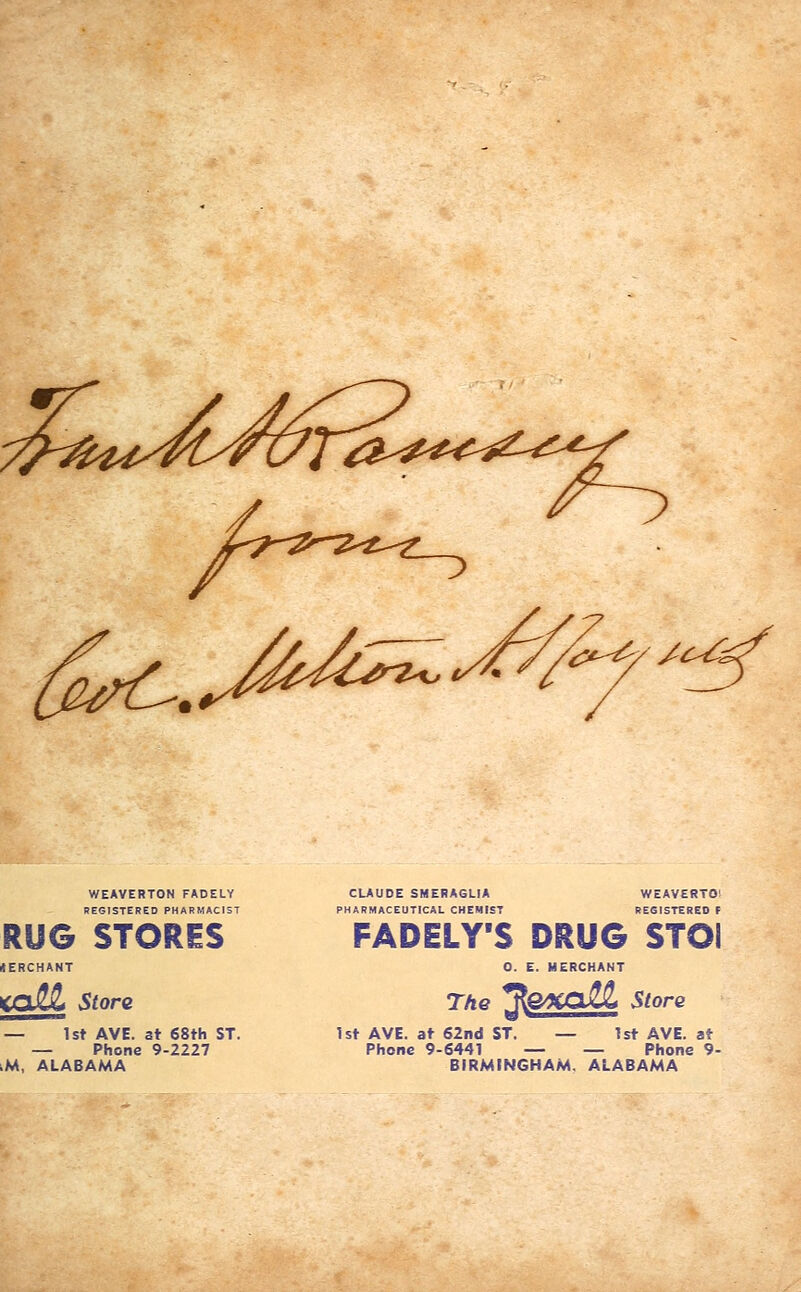 Frank A Ramsey
from
Col. Milton A. Haynes
WEAVERTON FADELY CLAUDE SMERAGLIA WEAVERTO
REGISTERED PHARMACIST PHARMACEUTICAL CHEMIST REGISTERED P
RUG STORES FADELY'S DRUG STO
MERCHANT O. E. MERCHANT
xall Store The Rexall Store
— 1st AVE. at 68th ST. 1st AVE. at 62nd ST. — 1st AVE. at
— Phone 9-2227 Phone 9-6441 — — Phone 9-
AM, ALABAMA BIRMINGHAM, ALABAMA